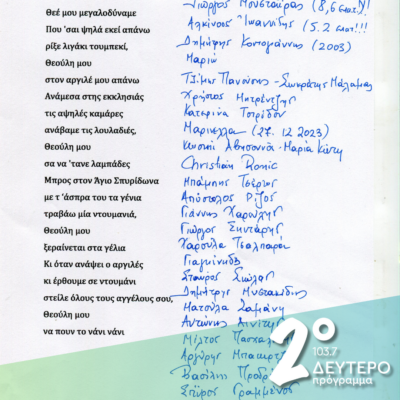 Θεέ μου μεγαλοδύναμε
Που 'σαι ψηλά εκεί απάνω
ρίξε λιγάκι τουμπεκί,
Θεούλη μου
στον αργιλέ μου απάνω
Ανάμεσα στης εκκλησιάς
τις αψηλές καμάρες
ανάβαμε τις λουλαδιές,
Θεούλη μου
σα να 'τανε λαμπάδες
Μπρος στον Άγιο Σπυρίδωνα
με τ' άσπρα του τα γένια
τραβάω μία ντουμανιά,
Θεούλη μου
ξεραίνεται στα γέλια
Κι όταν ανάψει ο αργιλές
κι έρθουμε σε ντουμάνι
στείλε όλους τους αγγέλους σου,
Θεούλη μου
να πουν το νάνι νάνι
Γιώργος Μουσταΐρας (8,6 εκατ.)!
Αλκίνοος Ιωαννίδης (5.2 εκατ!!!
Δημήτρης Κοντογιάννης (2003)
Μαριώ
Τζίμης Πανούσης - Σωκράτης Μάλαμας
Χρήστος Μητρέντζης
Κατερίνα Τσιρίδου
Μαρινέλλα (27.12.2023)
Μαρία Κώτη
Christian Ronic
Μπάμπης Τσέρτος
Απόστολος Ρίζος
Γιάννης Χαρούλης
Γιώργος
Χαρούλα Τσαλπαρά
Γιαγκίνηδες
Σταύρος Σιώλας
Δημήτρης Μυστακίδης
Ματούλα Ζαμάνη
Αντώνης
Μίλτος Πασχαλ
Αργύρης Μπακιρτ
Βασίλης Προδρ
Σπύρος Γραμμένος
2ο
103.7
ΔΕΥΤΕΡΟ
πρόγραμμα